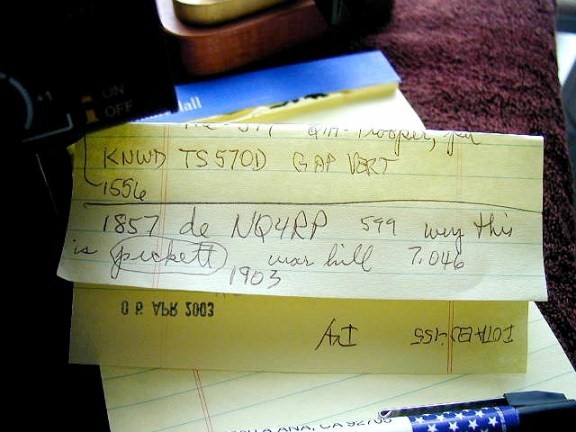 ON
OFF
QTH-
KNWD TS570D GAP VERT
1556
1857 de NQ4RP 599 wey this
is pickett war hill 7.046
1903
06 APR 2003
IOTA EU-155
ANA, CA 92706